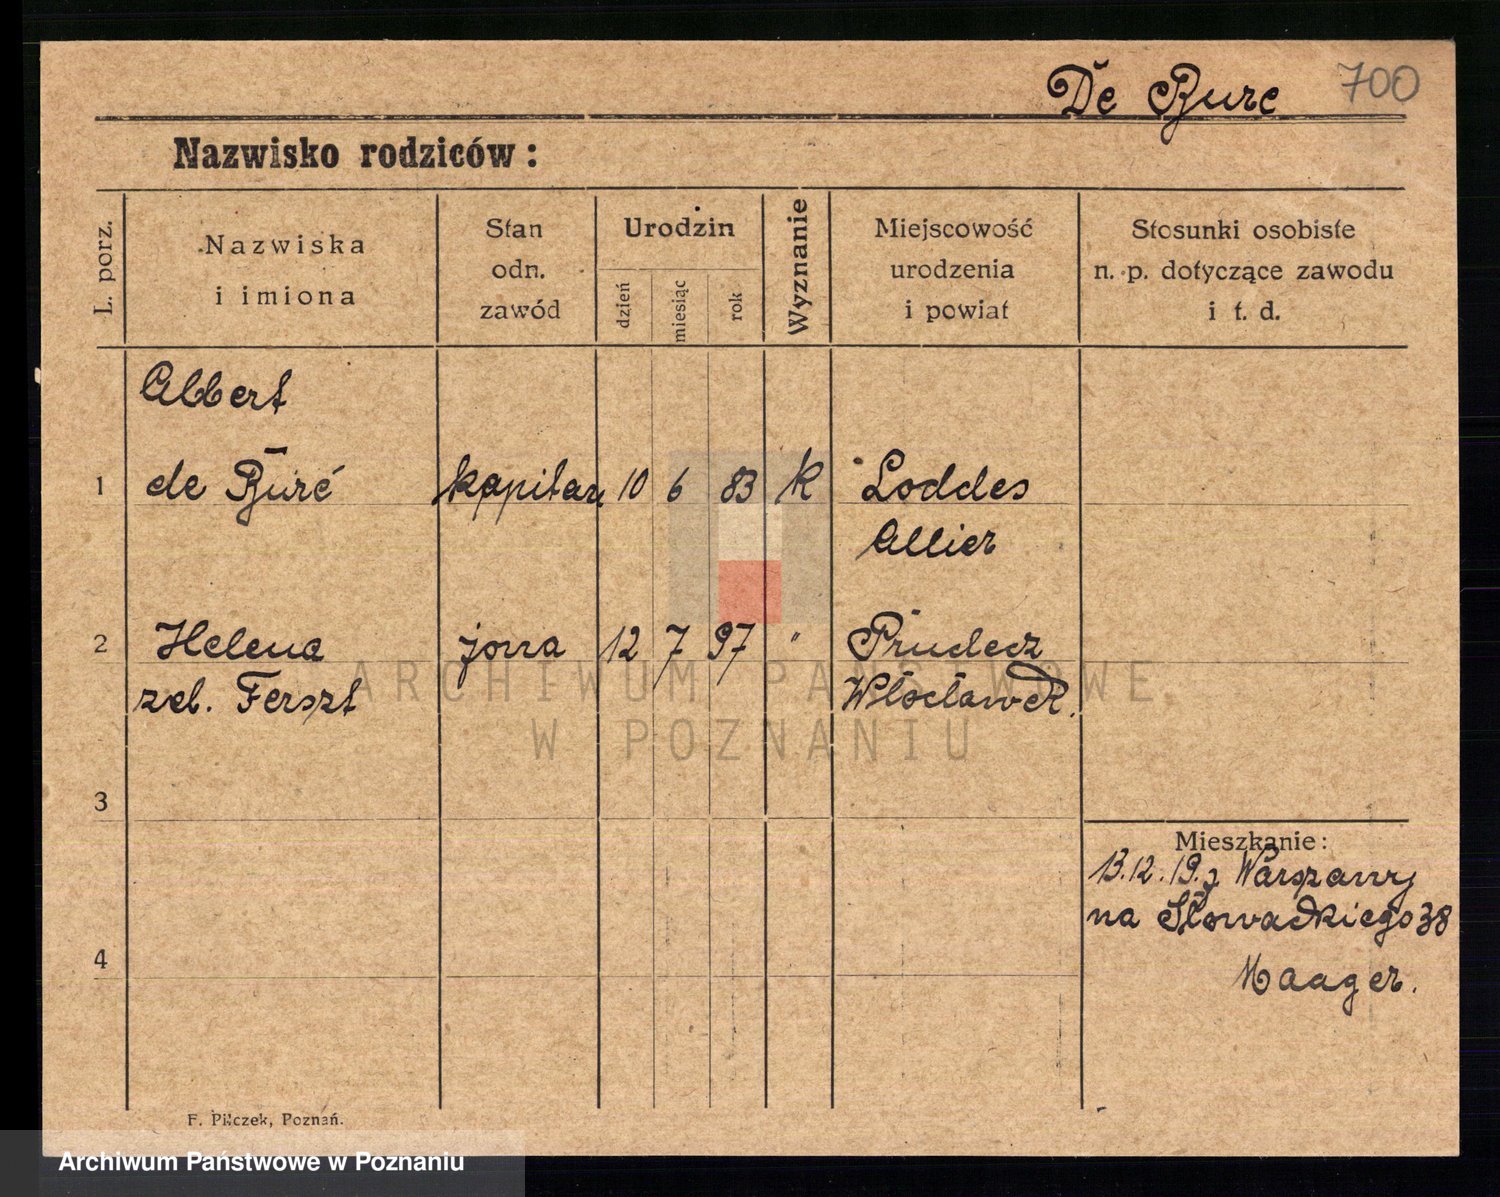 De Bure 700
Nazwisko rodziców:
L. porz.
Nazwiska
i imiona
Stan
odn.
zawód
Urodzin
dzień
miesiąc
rok
Wyznanie
Miejscowość
urodzenia
i powiat
Stosunki osobiste
n. p. dotyczące zawodu
i t. d.
Albert
1 de Buré kapitan 10 6 83 k Loddes
Allier
2 Helena żona 12 7 97 " Prudecz
zd. Ferszt Włocławek.
ARCHIWUM PAŃSTWOWE
W POZNANIU
3
Mieszkanie:
13.12.19. z Warszawy
na Słowackiego 38
4
Maager.
F. Pilczek, Poznań.
Archiwum Państwowe w Poznaniu